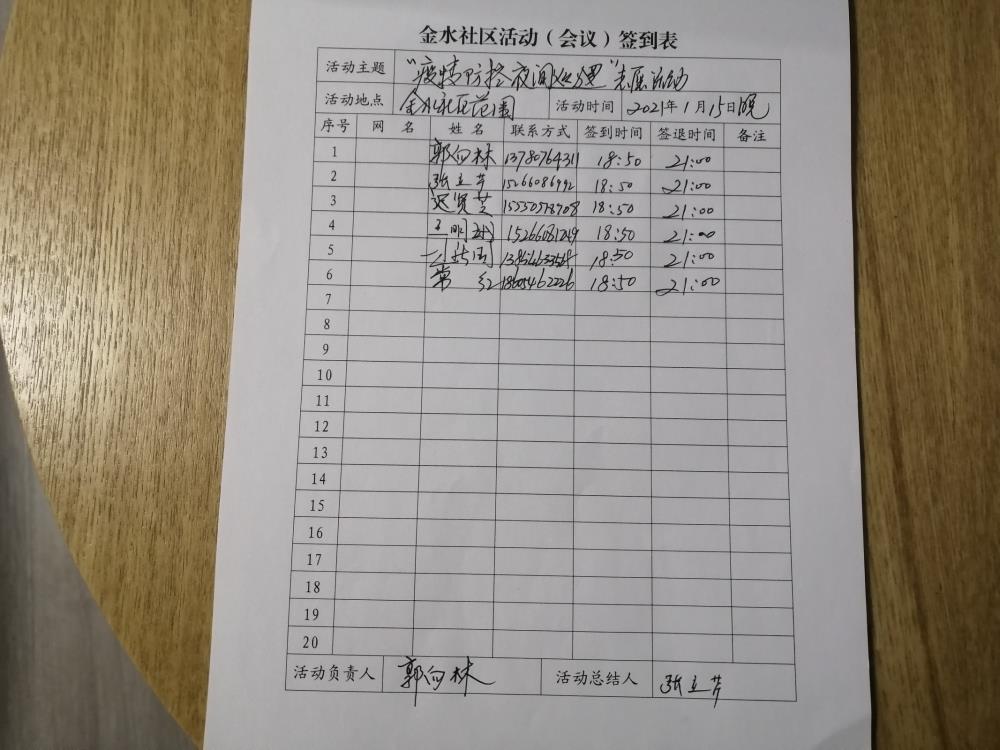 金水社区活动（会议）签到表
活动主题 "疫情防控夜间巡逻"志愿活动
活动地点 金水社区范围 活动时间 2021年1月15日晚
序号 网 名 姓 名 联系方式 签到时间 签退时间 备注
1 郭向林 13780764311 18:50 21:00
2 张立芹 15266086992 18:50 21:00
3 迟贤芝 18:50 21:00
4 18:50 21:00
5 18:50 21:00
6 常红 18605462226 18:50 21:00
7
8
9
10
11
12
13
14
15
16
17
18
19
20
活动负责人 郭向林 活动总结人 张立芹